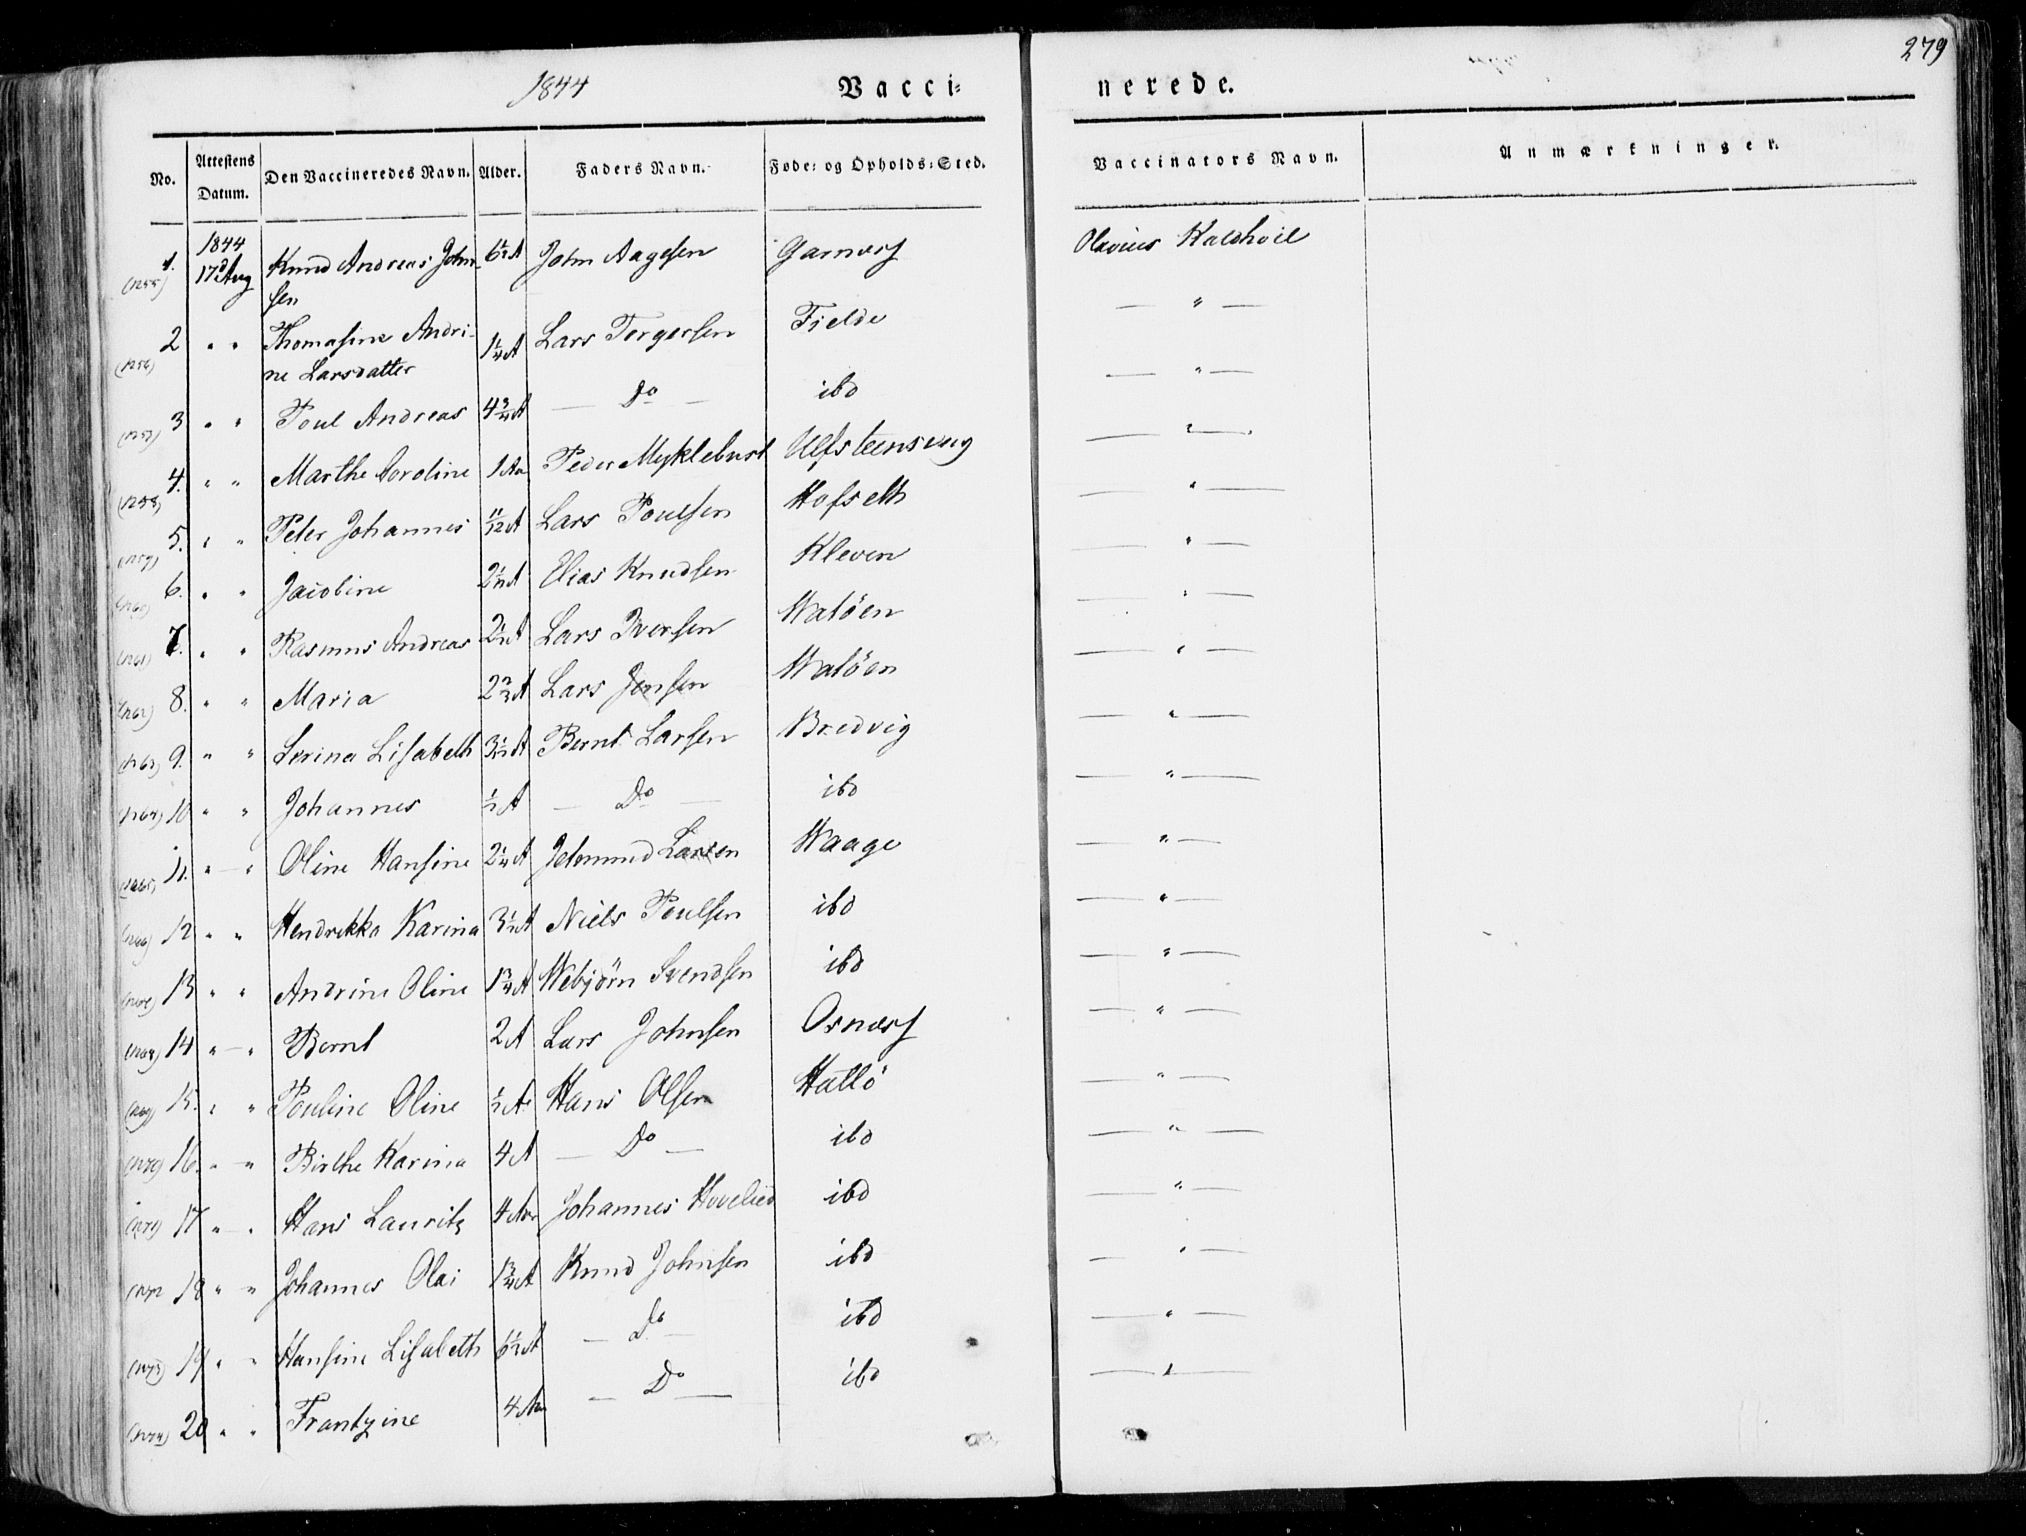 279
1844 Vacci= nerede.
No. Attestens Datum. Den Vaccineredes Navn. Alder. Faders Navn. Føde= og Opholds=Sted. Vaccinators Navn. Anmærkninger.
1844
(1255) 1. 17d Aug Knud Andreas John- 6½ A John Aagesen Garnæs Olavius Kaldhoel
sen
(1256) 2 " " Thomasine Andri- 1¼ A Lars Torgersen Fielde — " —
ne Larsdatter
(1257) 3 " " Poul Andreas 4¾ A — Do — ibd — " —
(1258) 4. " " Marthe Caroline 1 Aar Peder Myklebust Ulfsteensvug — " —
(1259) 5. " " Peter Johannes 11/12 A Lars Poulsen Hofseth — " —
(1260) 6. " " Jacobine 2½ A Elias Knudsen Kleven — " —
(1261) 7. " " Rasmus Andreas 2½ A Lars Iversen Watöen — " —
(1262) 8. " " Maria 2¾ A Lars Jensen Watöen — " —
(1263) 9. " " Serina Lisabeth 3½ A Bernt Larsen Bredvig — " —
(1264) 10 " " Johannes ½ A — Do — ibd — " —
(1265) 11. " — " Oline Hansine 2¼ A Jetmund Larsen Waage " —
(1266) 12 " " Hendrikka Karina 3½ A Niels Poulsen ibd — " —
13 " " Andrine Oline 1¾ A Webjörn Svendsen ibd — " —
(1268) 14 " — " Bernt 2 A Lars Johnsen Osnæs — " —
(1269) 15. " " Pouline Oline ½ A Hans Olsen Hatlö — " —
(1270) 16. " — " Birthe Karina 4 A — Do — ibd — " —
(1271) 17 " — " Hans Lauritz 4 Aar Johannes Hovelied ibd — " —
(1272 18 " " Johannes Olai 1¾ A Knud Johnsen ibd — " —
(1273) 19 " " Hansine Lisabeth 6½ A — Do — ibd — " —
(1274) 20 " " Frantzine 4 Aar — Do — ibd — " —